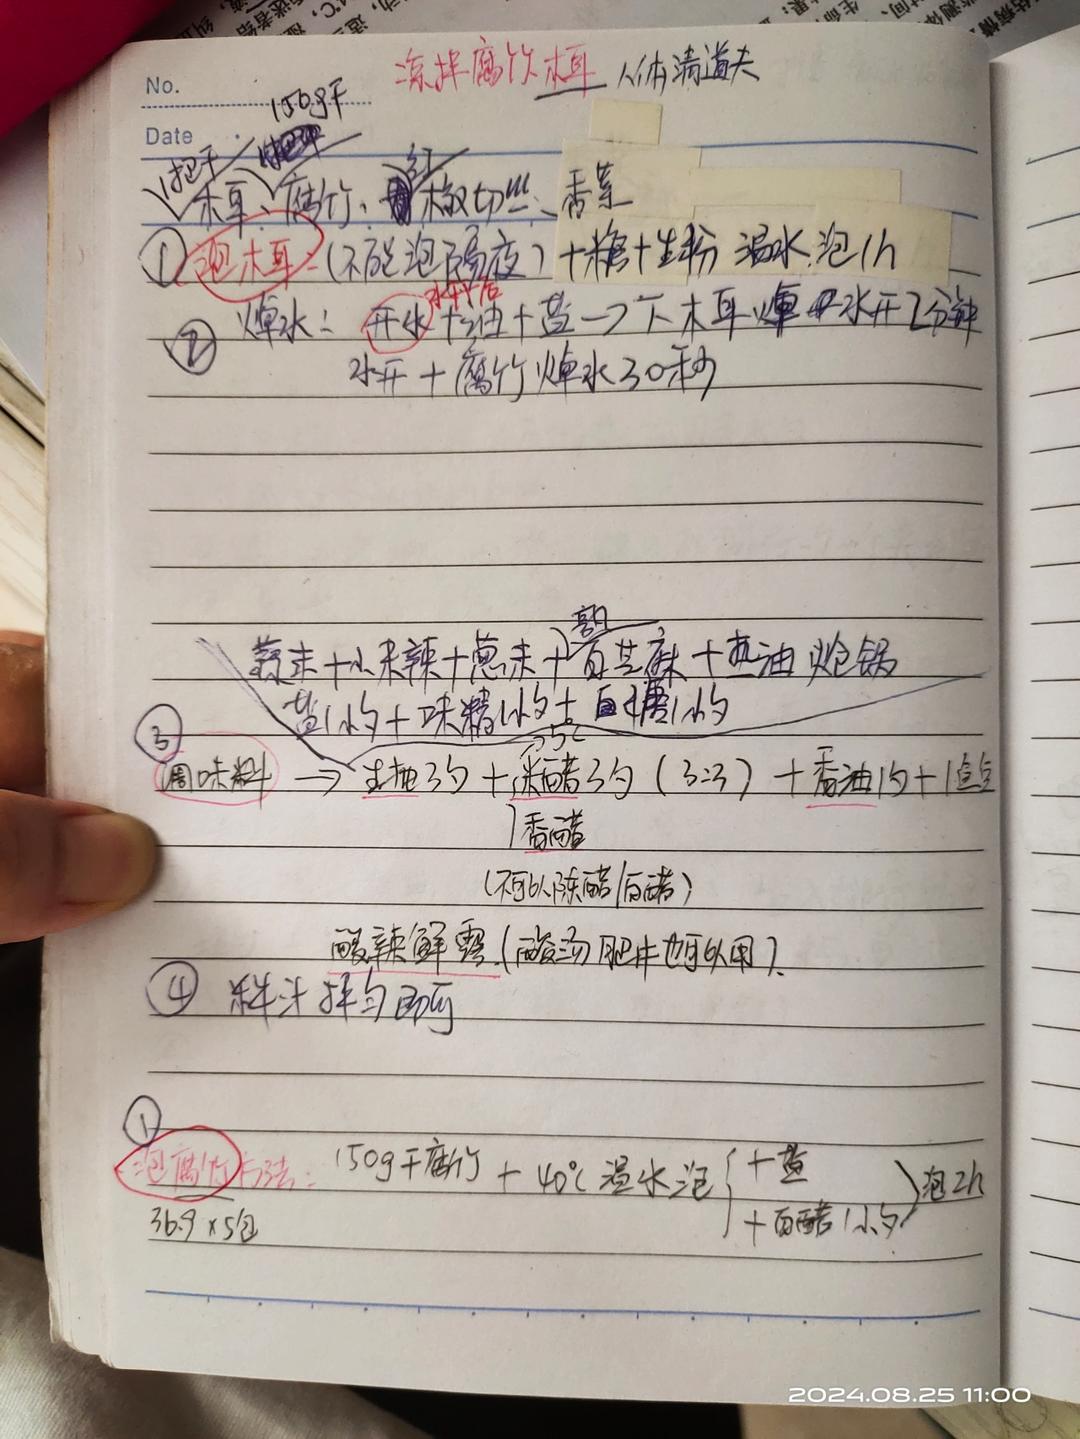 凉拌腐竹木耳 人体清道夫
No.
150g干
Date
1把干
红
木耳、腐竹、椒切丝、香菜
① 泡木耳:(不能泡隔夜)+糖+生粉 温水泡1h
水开后
② 焯水: 开水+油+盐→下木耳焯水开2分钟
水开+腐竹焯水30秒
熟
蒜末+小米辣+葱末+白芝麻+热油炝锅
盐1小勺+味精1小勺+白糖1小勺
③
调味料→生抽3勺+米醋3勺(3:3)+香油1勺+1点点
香醋
(不可以陈醋/白醋)
酸辣鲜露(酸汤肥牛也可以用).
④ 料汁拌匀即可
①
泡腐竹方法: 150g干腐竹+40℃温水泡 +盐 泡2h
36g×5包 +白醋1小勺
2024.08.25 11:00